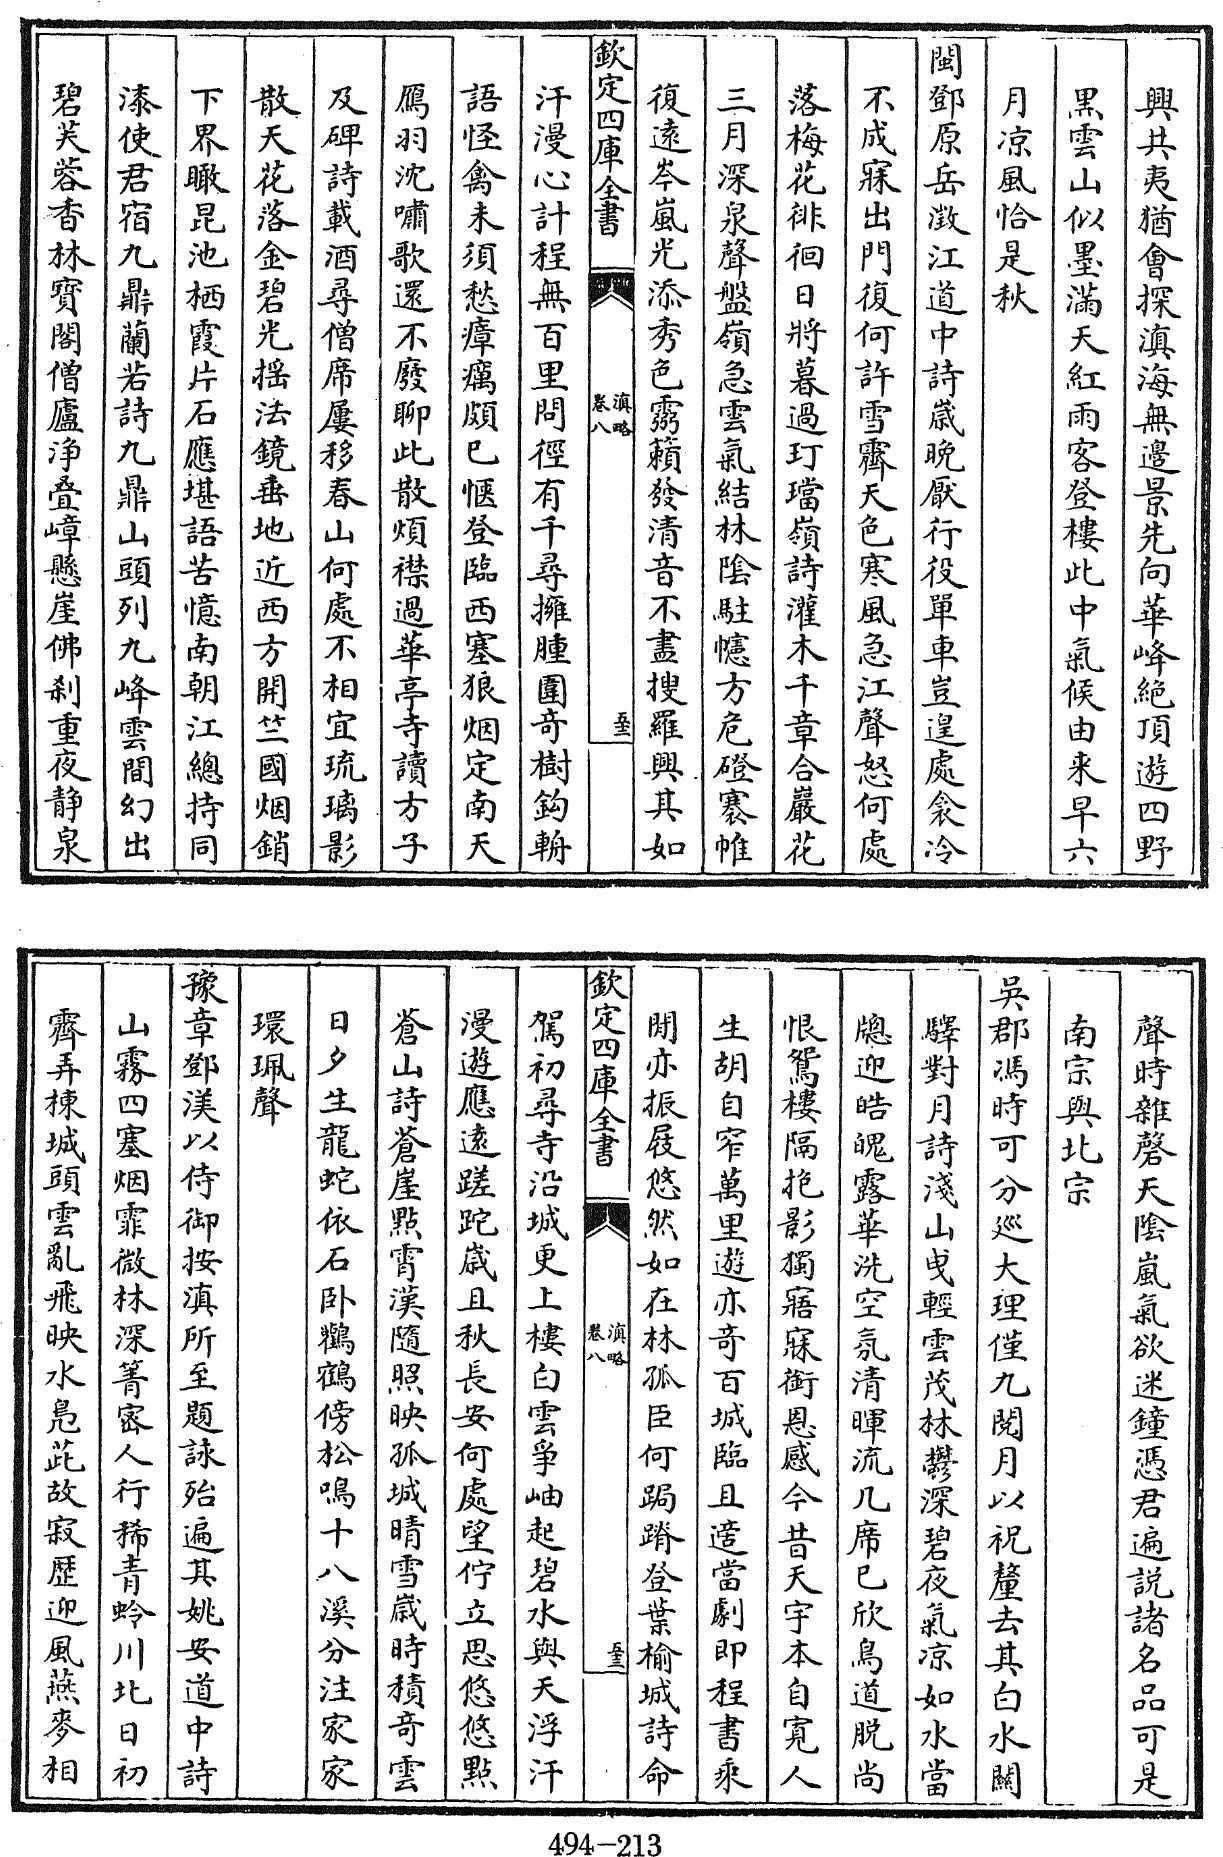 興共夷猶會探滇海無邊景先向華峰絕頂遊四野
黑雲山似墨滿天紅雨客登樓此中氣候由来早六
月凉風恰是秋
閩鄧原岳澂江道中詩嵗晚厭行役單車豈遑處衾冷
不成寐出門復何許雪霽天色寒風急江聲怒何處
落梅花徘徊日將暮過玎璫嶺詩灌木千章合巖花
三月深泉聲盤嶺急雲氣結林陰駐幰方危磴褰帷
復遠岑嵐光添秀色霛籟發清音不盡搜羅興其如
欽定四庫全書
滇略
卷八
五三
汗漫心計程無百里問徑有千尋擁腫圍奇樹鈎輈
語怪禽未須愁瘴癘頗已愜登臨西塞狼烟定南天
鴈羽沈嘯歌還不廢聊此散煩襟過華亭寺讀方子
及碑詩載酒尋僧席屢移春山何處不相宜琉璃影
散天花落金碧光揺法鏡垂地近西方開竺國烟銷
下界瞰昆池栖霞片石應堪語苦憶南朝江總持同
漆使君宿九鼎蘭若詩九鼎山頭列九峰雲間幻出
碧芙蓉香林寳閣僧廬浄叠嶂懸崖佛刹重夜静泉
聲時雜磬天陰嵐氣欲迷鐘憑君遍説諸名品可是
南宗與北宗
吳郡馮時可分巡大理僅九閲月以祝釐去其白水關
驛對月詩淺山曵輕雲茂林鬱深碧夜氣凉如水當
牕迎皓魄露華洗空氛清暉流几席已欣鳥道脱尚
恨鴛樓隔抱影獨寤寐銜恩感今昔天宇本自寛人
生胡自窄萬里遊亦奇百城臨且適當劇即程書乘
閒亦振屐悠然如在林孤臣何跼蹐登葉榆城詩命
欽定四庫全書
滇略
卷八
五三
駕初尋寺沿城更上樓白雲爭岫起碧水與天浮汗
漫遊應遠蹉跎嵗且秋長安何處望佇立思悠悠點
蒼山詩蒼崖點霄漢隨照映孤城晴雪嵗時積奇雲
日夕生龍蛇依石卧鸛鶴傍松鳴十八溪分注家家
環珮聲
豫章鄧渼以侍御按滇所至題詠殆遍其姚安道中詩
山霧四塞烟霏微林深箐宻人行稀青蛉川北日初
霽弄棟城頭雲亂飛映水鳧茈故寂歴迎風燕麥相
494-213